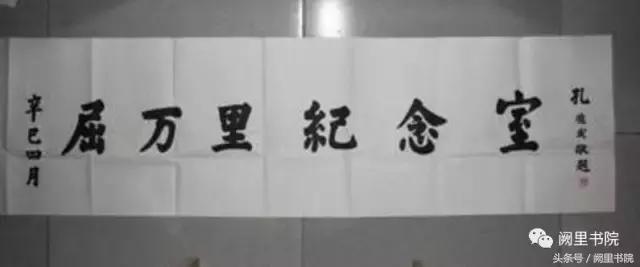 屈万里紀念室
辛巳四月
孔德成敬題
阙里书院
头条号／阙里书院